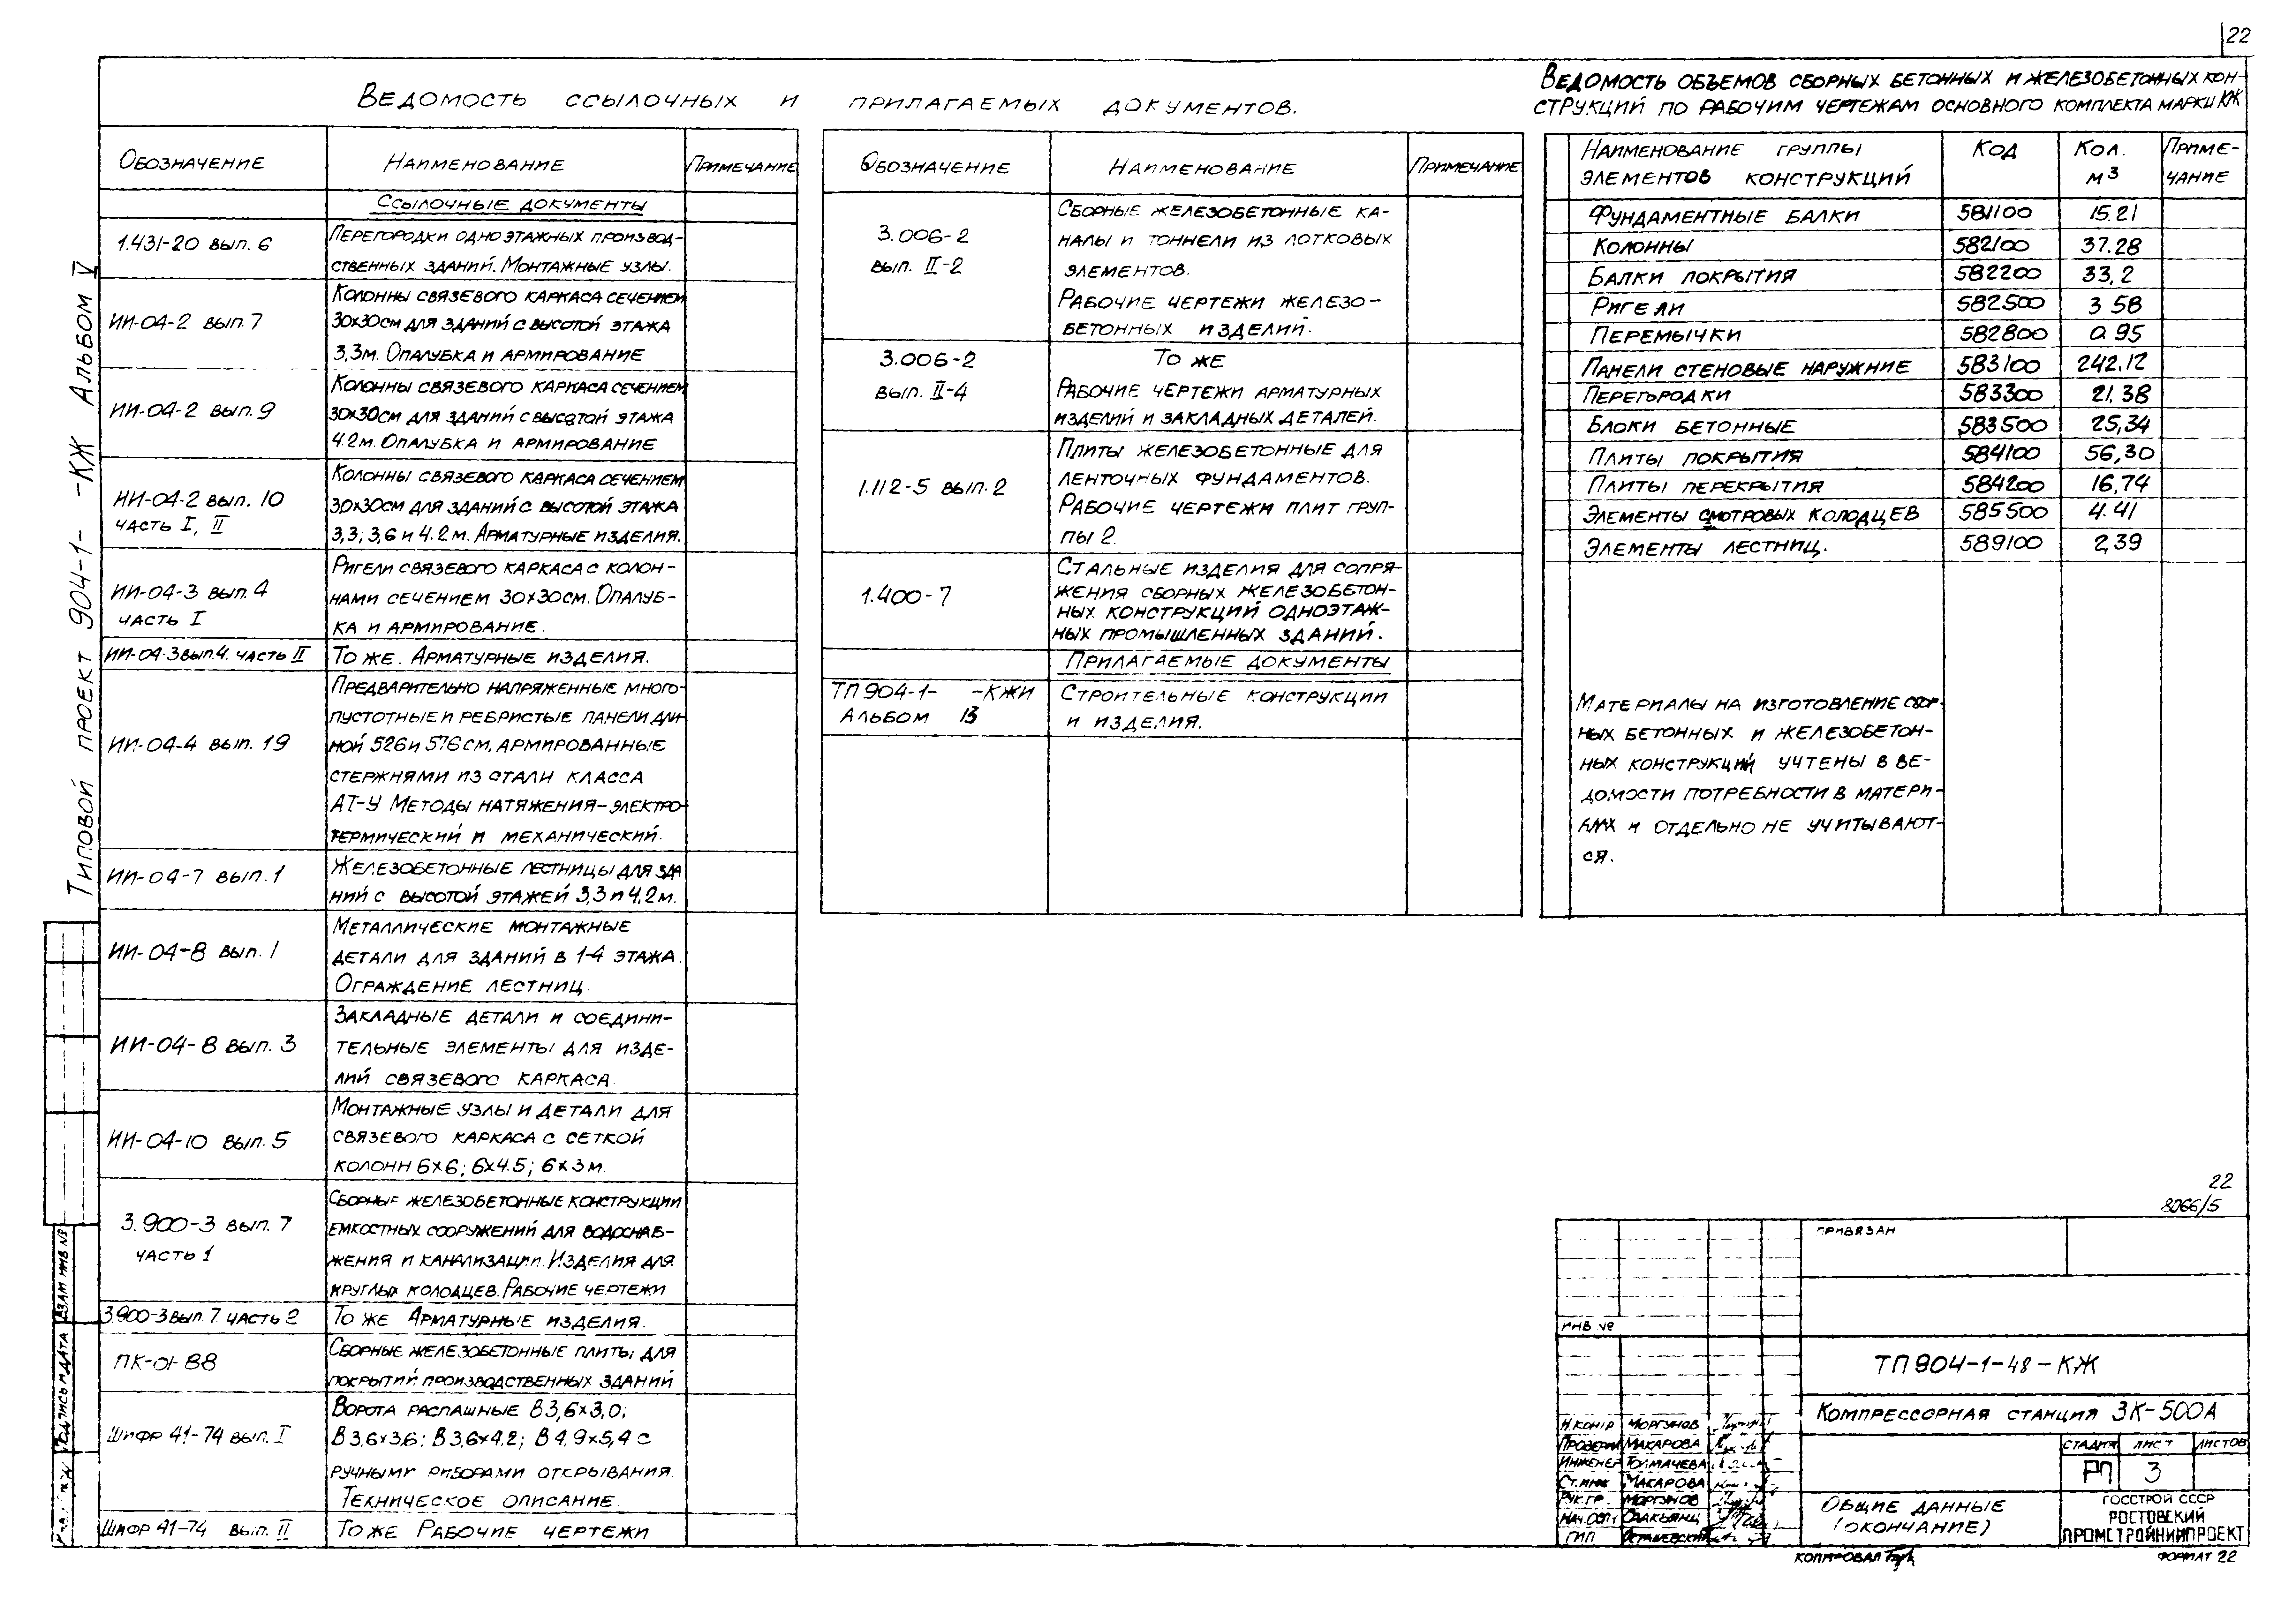 22
Ведомость ссылочных и прилагаемых документов.
Обозначение Наименование Примечание
Ссылочные документы
1.431-20 вып. 6
Перегородки одноэтажных производ-
ственных зданий. Монтажные узлы.
ИИ-04-2 вып. 7
Колонны связевого каркаса сечением
30х30см для зданий с высотой этажа
3,3м. Опалубка и армирование
ИИ-04-2 вып. 9
Колонны связевого каркаса сечением
30х30см для зданий с высотой этажа
4.2м. Опалубка и армирование
ИИ-04-2 вып. 10
часть I, II
Колонны связевого каркаса сечением
30х30см для зданий с высотой этажа
3,3; 3,6 и 4.2 м. Арматурные изделия.
ИИ-04-3 вып. 4
часть I
Ригели связевого каркаса с колон-
нами сечением 30х30см. Опалуб-
ка и армирование.
ИИ-04-3 вып.4. часть II
То же. Арматурные изделия.
ИИ-04-4 вып. 19
Предварительно напряженные много-
пустотные и ребристые панели дли-
ной 526 и 576 см, армированные
стержнями из стали класса
АТ-У Методы натяжения-электро-
термический и механический.
ИИ-04-7 вып. 1
Железобетонные лестницы для зда
ний с высотой этажей 3,3 и 4,2 м.
ИИ-04-8 вып. 1
Металлические монтажные
детали для зданий в 1-4 этажа.
Ограждение лестниц.
ИИ-04-8 вып. 3
Закладные детали и соедини-
тельные элементы для изде-
лий связевого каркаса.
ИИ-04-10 вып. 5
Монтажные узлы и детали для
связевого каркаса с сеткой
колонн 6х6; 6х4.5; 6х3 м.
3.900-3 вып. 7
часть 1
Сборные железобетонные конструкции
емкостных сооружений для водоснаб-
жения и канализации. Изделия для
круглых колодцев. Рабочие чертежи
3.900-3 вып. 7. часть 2
То же Арматурные изделия.
ПК-01-88
Сборные железобетонные плиты для
покрытий производственных зданий
Шифр 41-74 вып. I
Ворота распашные В3,6х3,0;
В3,6х3,6; В3,6х4,2; В4,9х5,4 с
ручными риборами открывания.
Техническое описание.
Шифр 41-74 вып. II
То же Рабочие чертежи
Обозначение Наименование Примечание
3.006-2
вып. II-2
Сборные железобетонные ка-
налы и тоннели из лотковых
элементов.
Рабочие чертежи железо-
бетонных изделий.
3.006-2
вып. II-4
То же
Рабочие чертежи арматурных
изделий и закладных деталей.
1.112-5 вып. 2
Плиты железобетонные для
ленточных фундаментов.
Рабочие чертежи плит груп-
пы 2.
1.400-7
Стальные изделия для сопря-
жения сборных железобетон-
ных конструкций одноэтаж-
ных промышленных зданий.
Прилагаемые документы
ТП904-1- -КЖИ
Альбом
Строительные конструкции
и изделия.
Ведомость объемов сборных бетонных и железобетонных кон-
струкций по рабочим чертежам основного комплекта марки КЖ
Наименование группы
элементов конструкций
Код
Кол.
м3
Приме-
чание
Фундаментные балки 581100 15.21
Колонны 582100 37.28
Балки покрытия 582200 33,2
Ригели 582500 3 58
Перемычки 582800 0.95
Панели стеновые наружние 583100 242.12
Перегородки 583300 21,38
Блоки бетонные 583500 25,34
Плиты покрытия 584100 56,30
Плиты перекрытия 584200 16,74
Элементы смотровых колодцев 585500 4.41
Элементы лестниц. 589100 2,39
Материалы на изготовление сбор-
ных бетонных и железобетон-
ных конструкций учтены в ве-
домости потребности в матери-
алах и отдельно не учитывают-
ся.
Типовой проект 904-1- -КЖ Альбом V
Взам инв №
Подпись и дата
22
8066/5
Привязан
Инв №
ТП904-1-48-КЖ
Компрессорная станция 3К-500А
Стадия Лист Листов
РП 3
Общие данные
(окончание)
Госстрой СССР
Ростовский
Промстройниипроект
Н.контр Моргунов
Проверил Макарова
Инженер Толмачева
Ст.инж Макарова
Рук.гр. Моргунов
Нач.отд
ГИП
Копировал
Формат 22